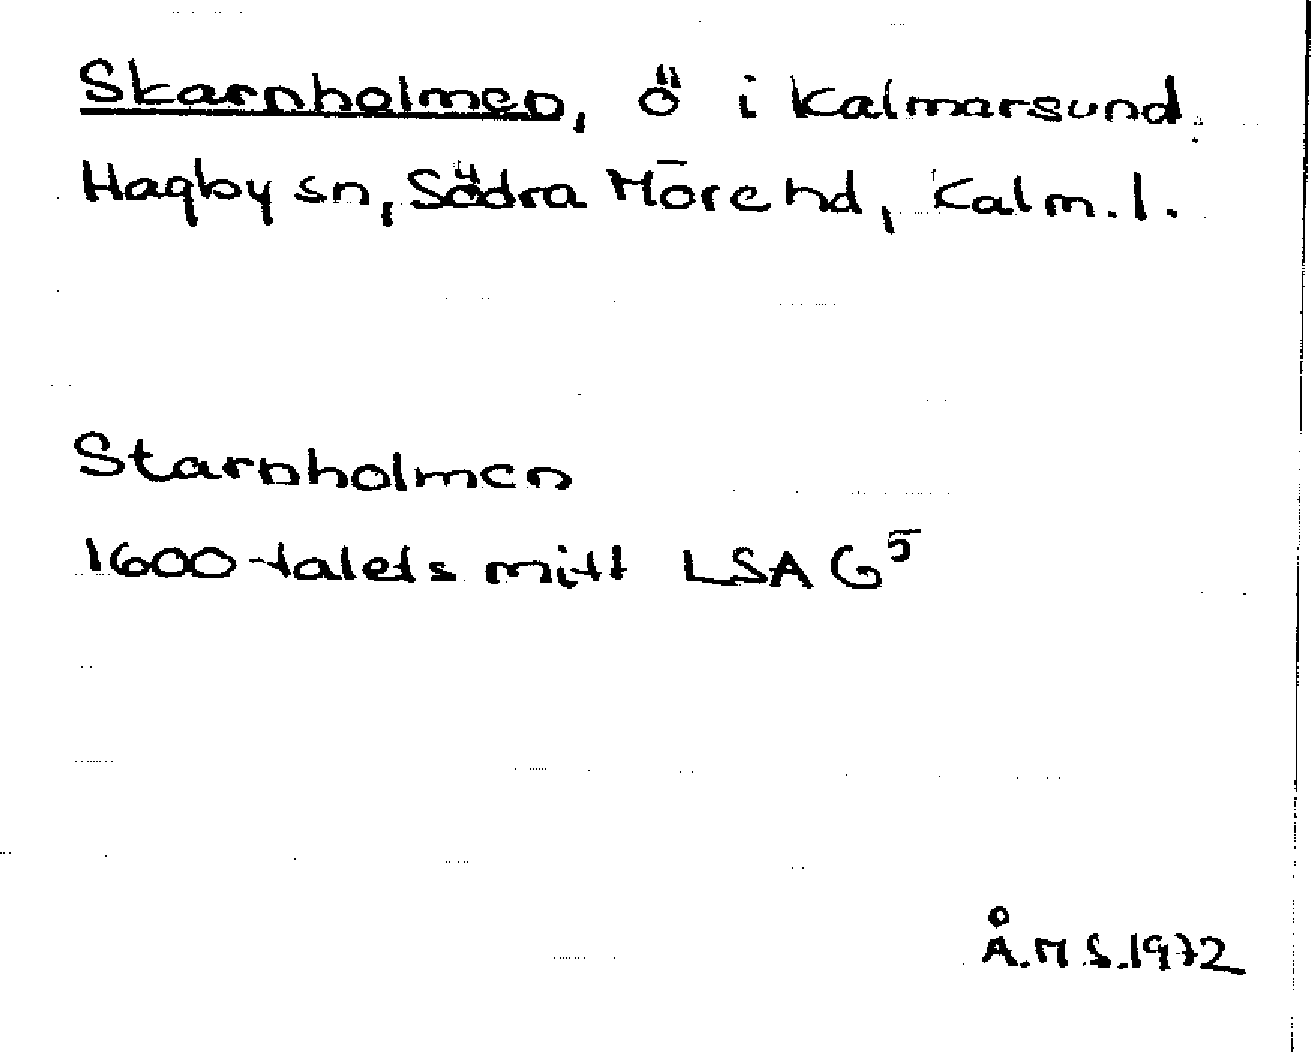 Skarnholmen, ö i Kalmarsund.
Hagby sn, Södra Möre hd, Kalm. l.
Starnholmen
1600-talets mitt LSA G⁵
Å.M S.1972